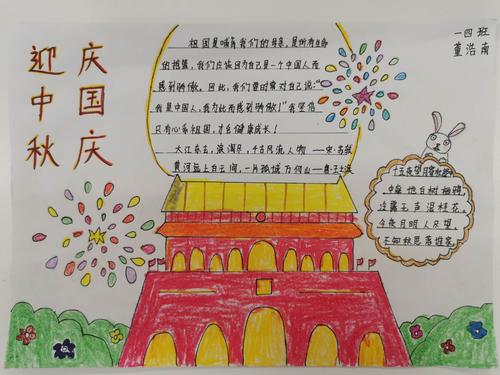 迎中秋
庆国庆
祖国是哺育我们的母亲，是所有生命
的摇篮，我们应该因为自己是一个中国人而
感到骄傲。因此，我们要时常对自己说：“
我是中国人，我为此而感到骄傲！”我坚信
只有心系祖国，才能健康成长！
大江东去，浪淘尽，千古风流人物——宋·苏轼
黄河远上白云间，一片孤城万仞山——唐·王之涣
一四班
董浩南
十五夜望月寄杜郎中
中庭地白树栖鸦，
冷露无声湿桂花。
今夜月明人尽望，
不知秋思落谁家。